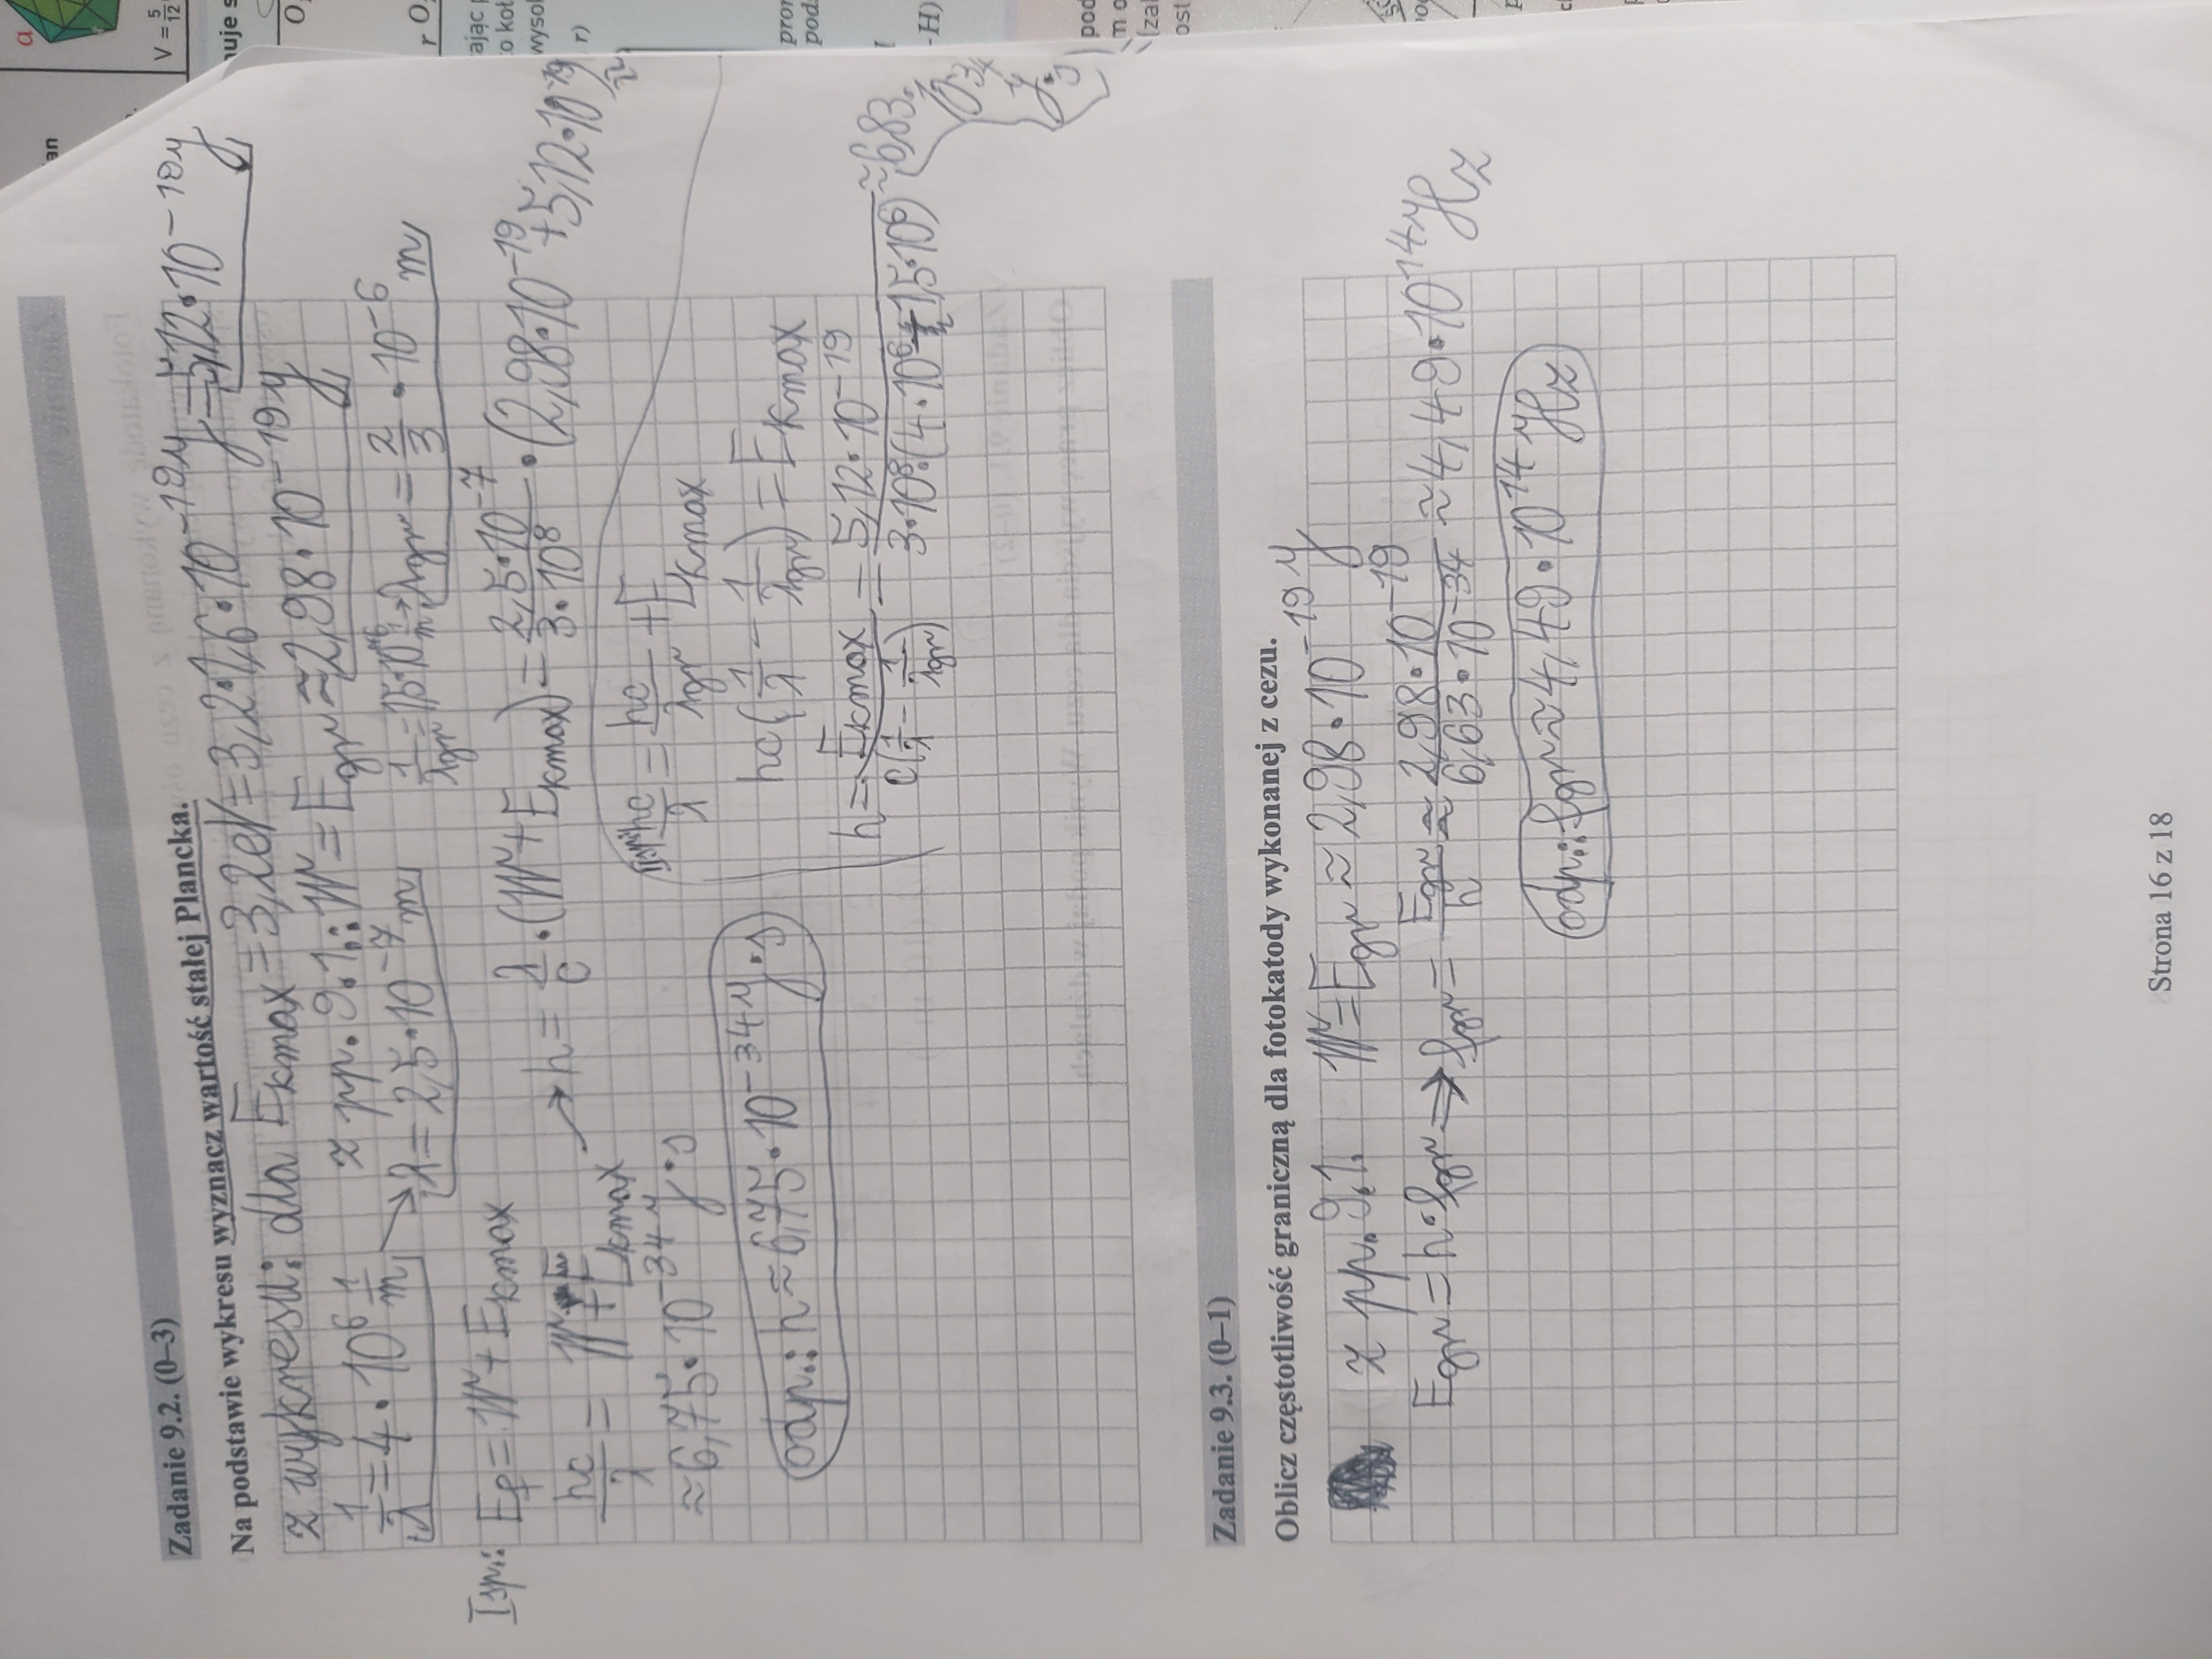 Zadanie 9.2. (0–3)
Na podstawie wykresu wyznacz wartość stałej Plancka.
z wykresu: dla Ekmax = 3,2eV = 3,2·1,6·10⁻¹⁹ J = 5,12·10⁻¹⁹ J
z pp. 9.1.: W = Egr ≈ 2,98·10⁻¹⁹ J
1/λ = 4·10⁶ 1/m → λ = 2,5·10⁻⁷ m
1/λgr = 1,5·10⁶ 1/m → λgr = 2/3 · 10⁻⁶ m
I sp.: Ef = W + Ekmax
hc/λ = W + Ekmax → h = λ/c · (W + Ekmax) = 2,5·10⁻⁷/3·10⁸ · (2,98·10⁻¹⁹ + 5,12·10⁻¹⁹) ≈
≈ 6,75·10⁻³⁴ J·s
odp.: h ≈ 6,75·10⁻³⁴ J·s
hc/λ = hc/λgr + Ekmax
hc(1/λ − 1/λgr) = Ekmax
h = Ekmax/c(1/λ − 1/λgr) = 5,12·10⁻¹⁹/3·10⁸·(4·10⁶ − 1,5·10⁶) ≈ 6,83·
J·s
Zadanie 9.3. (0–1)
Oblicz częstotliwość graniczną dla fotokatody wykonanej z cezu.
z pp. 9.1. W = Egr ≈ 2,98·10⁻¹⁹ J
Egr = h·fgr → fgr = Egr/h ≈ 2,98·10⁻¹⁹/6,63·10⁻³⁴ ≈ 4,49·10¹⁴ Hz
odp.: fgr ≈ 4,49·10¹⁴ Hz
Strona 16 z 18